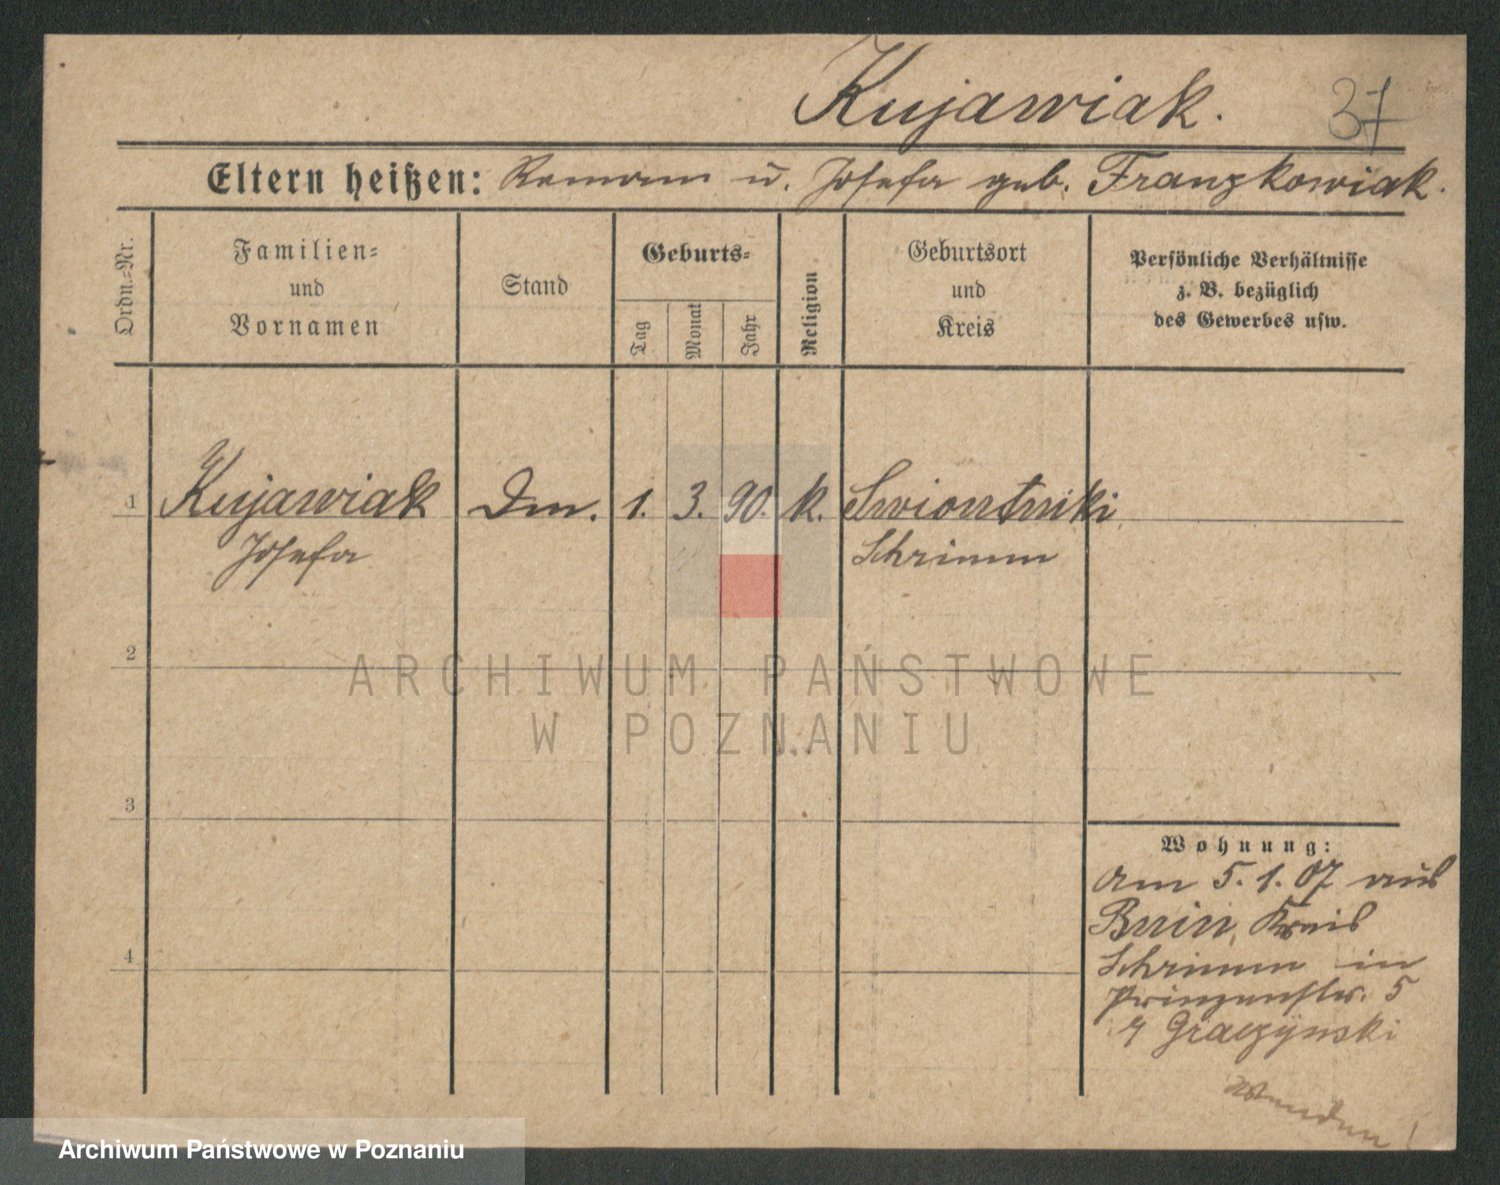 Kujawiak. 37
Eltern heißen: Roman u. Josefa geb. Franzkowiak.
Ordn.-Nr.
Familien-
und
Vornamen
Stand
Geburts-
Tag
Monat
Jahr
Religion
Geburtsort
und
Kreis
Persönliche Verhältnisse
z. B. bezüglich
des Gewerbes usw.
1 Kujawiak Dm. 1. 3. 90. k. Swiontniki
Josefa Schrimm
2
ARCHIWUM PAŃSTWOWE
W POZNANIU
3
Wohnung:
Am 5.1.07 aus
Bnin, Kreis
4
Schrimm in
Prinzenstr. 5
Graczynski
Wenden!
Archiwum Państwowe w Poznaniu